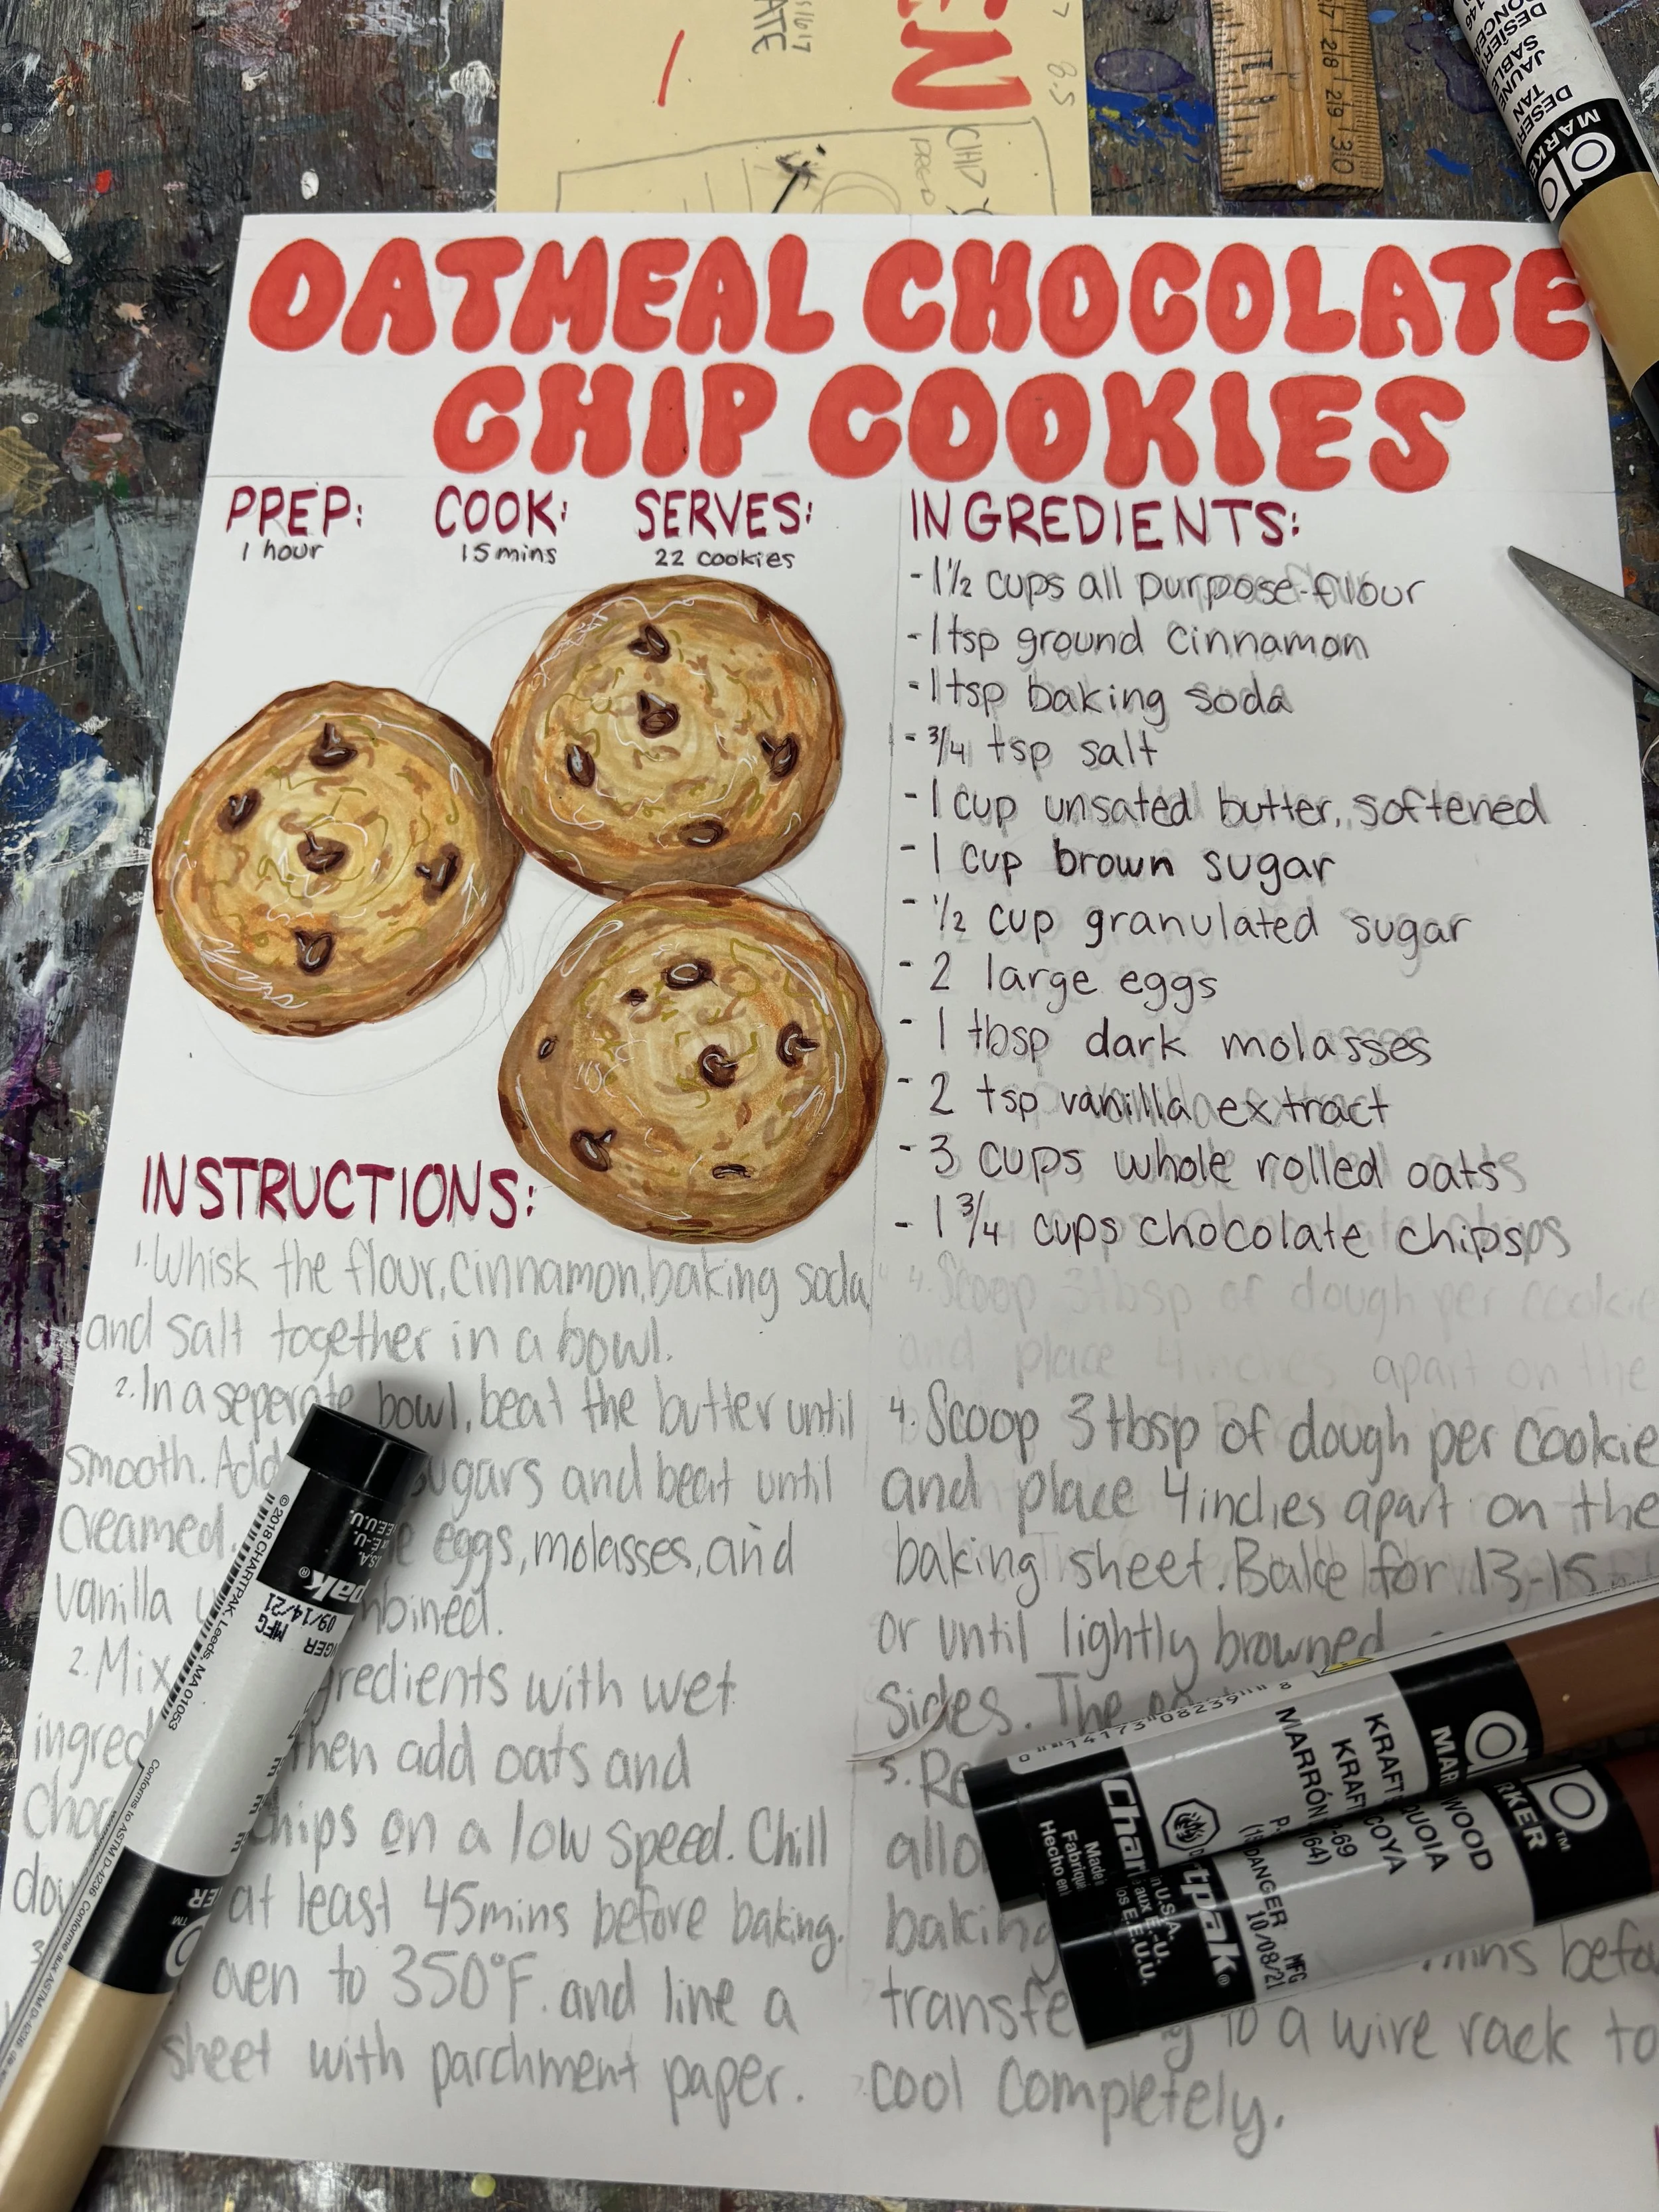 EN
ATE
8.5
CHIP
28 29 30
DESIERTO
SABLE
JAUNE
DESERT
TAN
MARKER
OATMEAL CHOCOLATE
CHIP COOKIES
PREP: COOK: SERVES:
1 hour 15 mins 22 cookies
INGREDIENTS:
-1 1/2 cups all purpose flour
-1 tsp ground cinnamon
-1 tsp baking soda
-3/4 tsp salt
-1 cup unsated butter, softened
-1 cup brown sugar
-1/2 cup granulated sugar
-2 large eggs
-1 tbsp dark molasses
-2 tsp vanilla extract
-3 cups whole rolled oats
-1 3/4 cups chocolate chips
INSTRUCTIONS:
1. Whisk the flour, cinnamon, baking soda
and salt together in a bowl.
2. In a seperate bowl, beat the butter until
smooth. Add sugars and beat until
creamed. eggs, molasses, and
vanilla
2. Mix with wet
then add oats and
chips on a low speed. Chill
at least 45mins before baking.
oven to 350°F. and line a
sheet with parchment paper.
4. Scoop 3 tbsp of dough per cookie
and place 4 inches apart on the
4. Scoop 3 tbsp of dough per cookie
and place 4 inches apart on the
baking sheet. Bake for 13-15
or until lightly browned
sides. The
5.
baking
mins
to a wire rack to
cool completely.
© 2018 CHARTPAK, Leeds, MA 01053
MFG
09/14/21
Conforms to ASTM D-4236
0 14173 08239 8
KRAFT
MARRÓN
Chartpak®
WOOD
MARKER™
DANGER
MFG
10/08/21